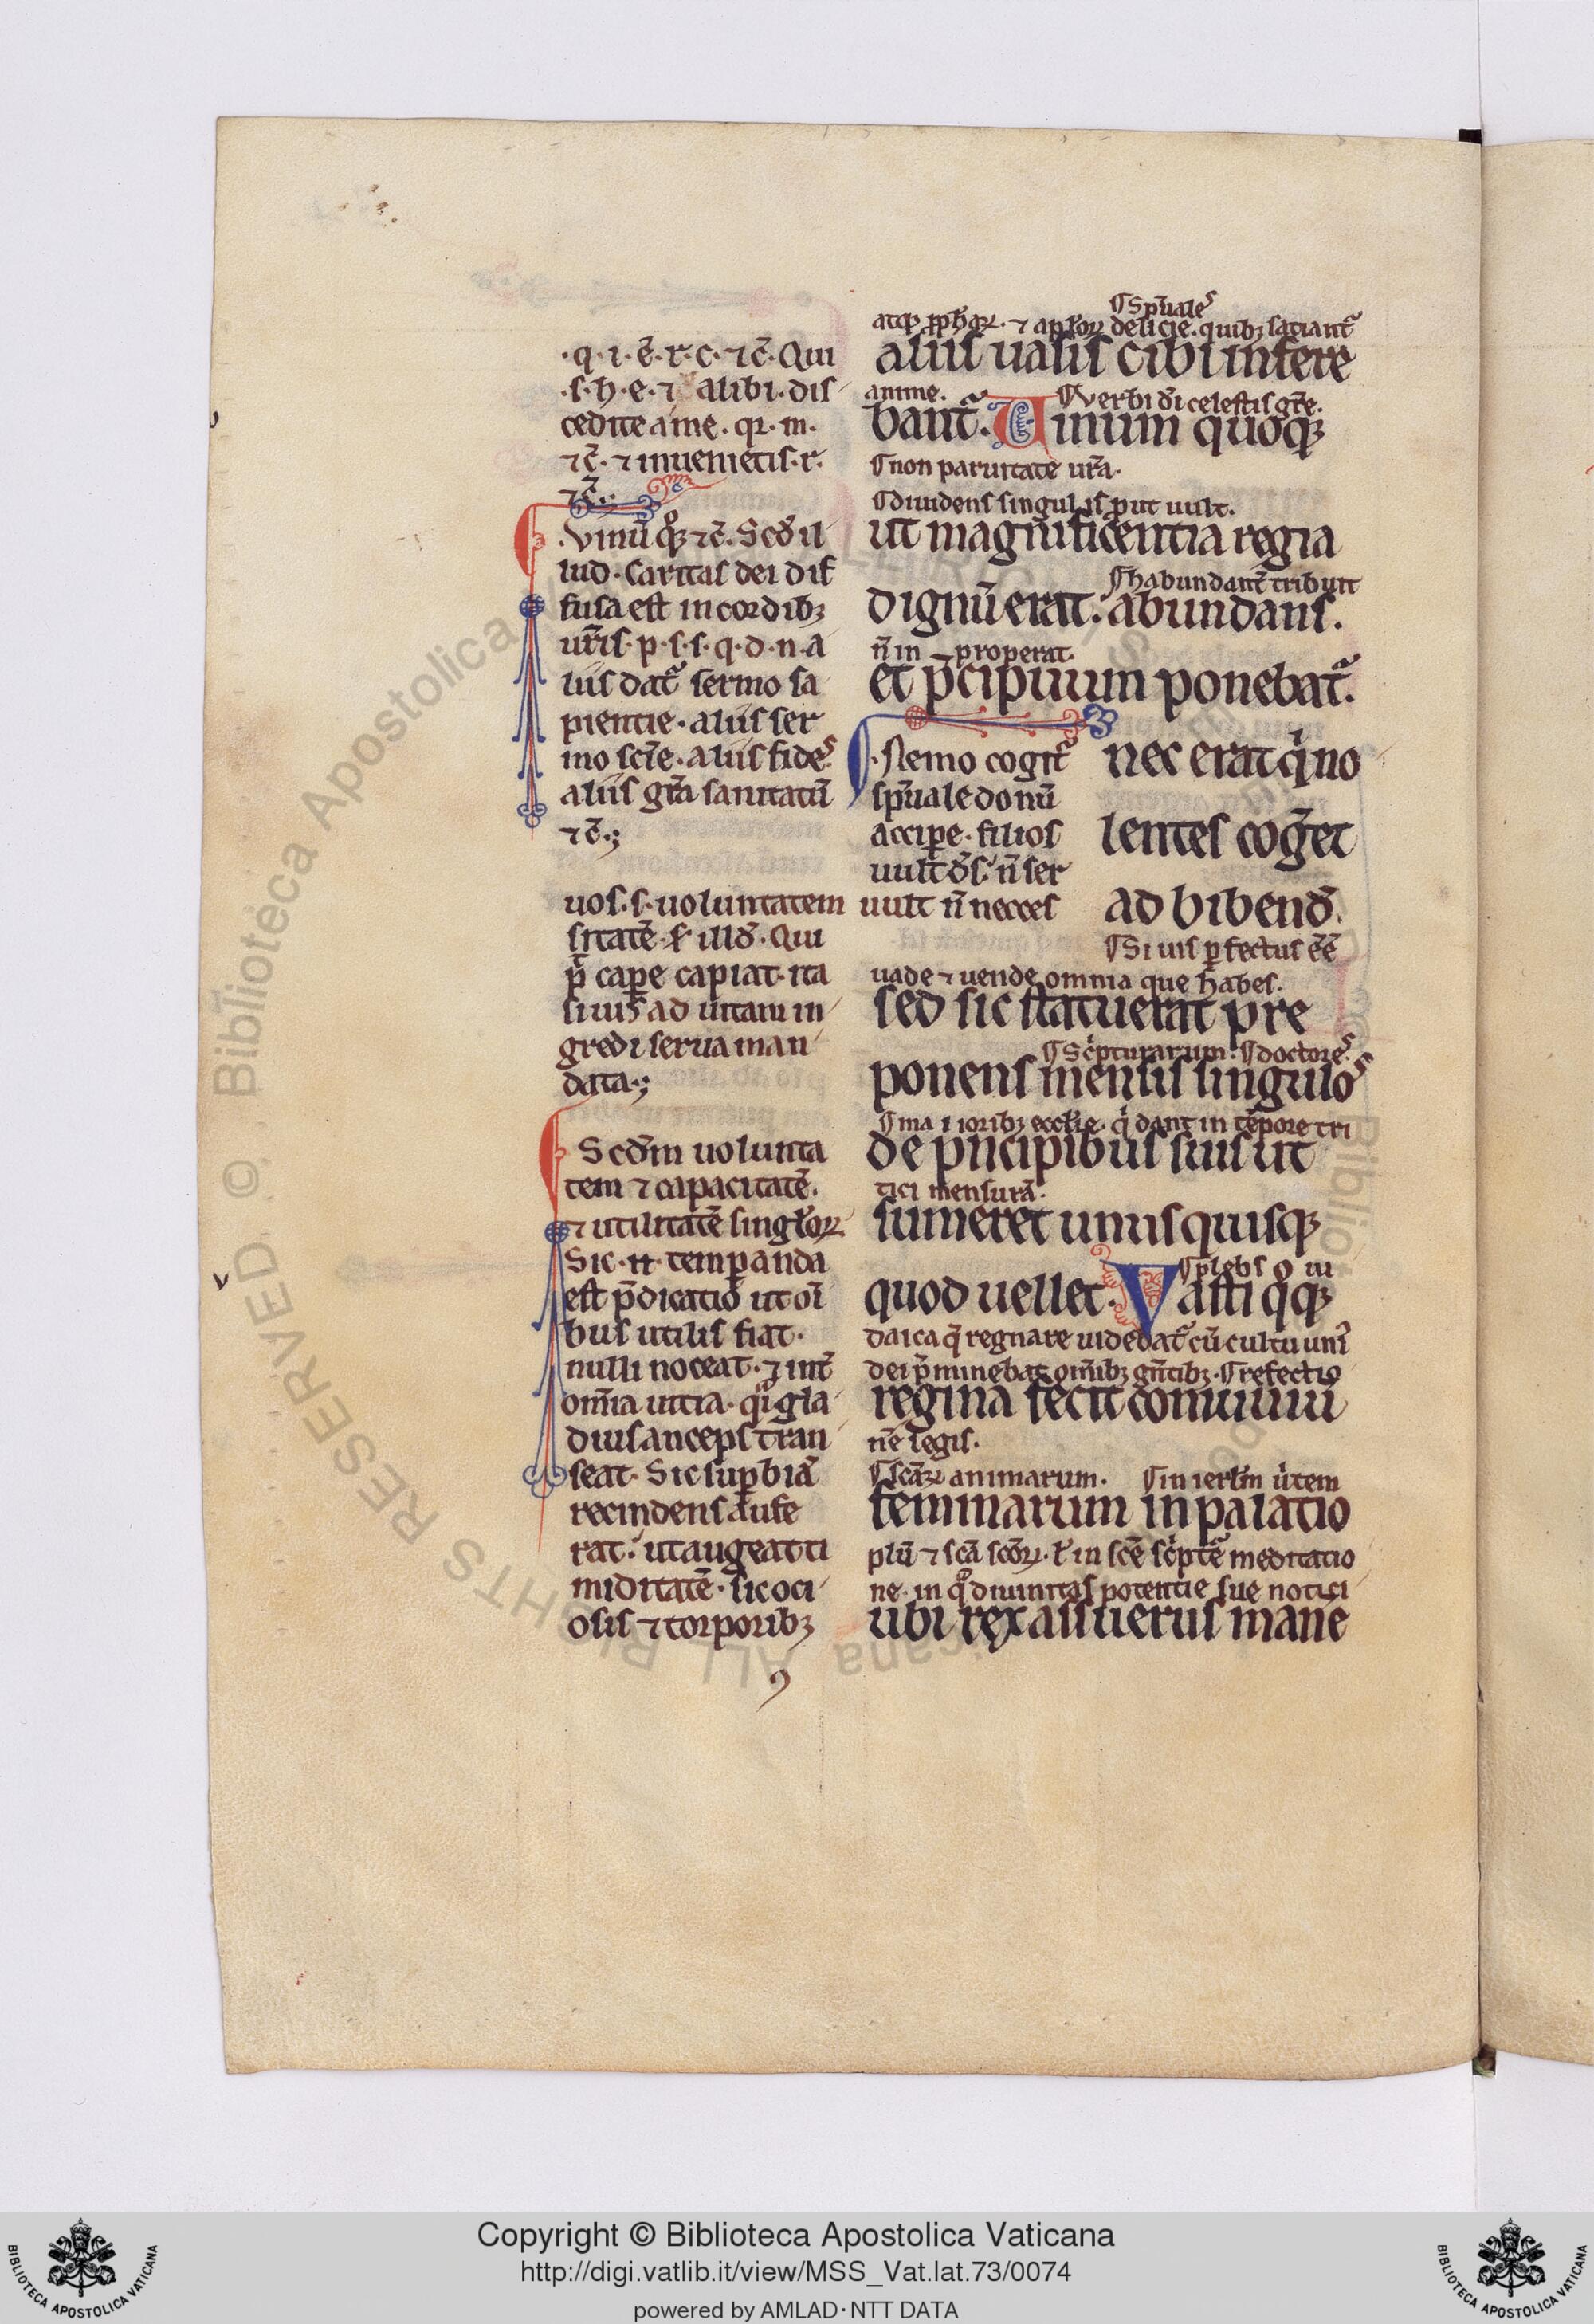 ·q·i·ē·r·c·⁊c̄·Qui
·s·h·e·⁊ alibi·dis
cedite a me·qr·m·
⁊c̄·⁊ inuenietis·r·
⁊c̄·:
·Vinū qͦqꝫ ⁊c̄·Scd̄ il
lud·Caritas dei dif
fusa est in cordibꝫ
ur̄is·p·s·s·q·d·n·a
liis dat᷑ sermo sa
pientie·aliis ser
mo scīe·aliis fides
aliis gr̄a sanitatū
⁊c̄·;
uos·s·uoluntatem
sitatē·
illd̄·Qui
p̄t capꝑe capiat·ita
si uis ad uitam in
gredi serua man
data·;
Scd̄m uolunta
tem ⁊ capacitatē·
⁊ utilitatē singl̓oꝝ
Sic·n̄·temꝑanda
est p̄dicatio ut oī
bus utilis fiat·
nulli noceat·⁊ int̄
om̄ia uitia·q̈i gla
dius anceps trān
seat·Sic suꝑbiā
recindens aufe
rat·ut augeat ti
miditatē·sic oci
osis ⁊ torporibꝫ
¶Sp̄uales
atqꝫ ꝓph̄aꝝ·⁊ apl̓oꝝ delicie·quibꝫ satiant᷑
aliis uasis cibi infere
anime·
¶Verbi d̄i celestis gr̄e·
bant᷑·Uinum quoqꝫ
¶non paruitate ur̄a·
¶diuidens singulis ꝓut uult·
ut magnificentia regia
¶habundant̄ tribuit
dignū erat·abundans·
n̄ in properat·
et p̄cipuum ponebat᷑·
·Nemo cogit᷑
nec erat qi no
sp̄uale donū
accipe·filios
lentes coḡet
uult d̄s·n̄ ser
uult n̄ necces
ad bibend̄·
¶Si uis ꝑfectus ēē
uade ⁊ uende omnia que habes·
sed sic statuerat pre
¶Scͥpturarum·¶doctores·
ponens mensis singulos
¶maioribꝫ eccl̓ie·qͥ dant in tēpore tri
de pͥncipibus suis ut
tici mensurā·
sumeret unusquisqꝫ
¶plebs
iu
quod uellet·Vasti qͦqꝫ
daica q̄ regnare uidebat᷑ cū cultu unī
dei p̄minebat om̄ibꝫ gn̄tibꝫ·¶refectio
regina fecit conuiuiū
nē legis·
¶scāꝝ animarum·¶in ierl̓m
feminarum in palatio
plū ⁊ scā scōꝝ·l̓ in scē scͥptē meditatio
ne·in qͦ diuinitas potentie sue notici
ubi rex assuerus mane
Copyright © Biblioteca Apostolica Vaticana
http://digi.vatlib.it/view/MSS_Vat.lat.73/0074
powered by AMLAD·NTT DATA
BIBLIOTECA APOSTOLICA VATICANA
BIBLIOTECA APOSTOLICA VATICANA